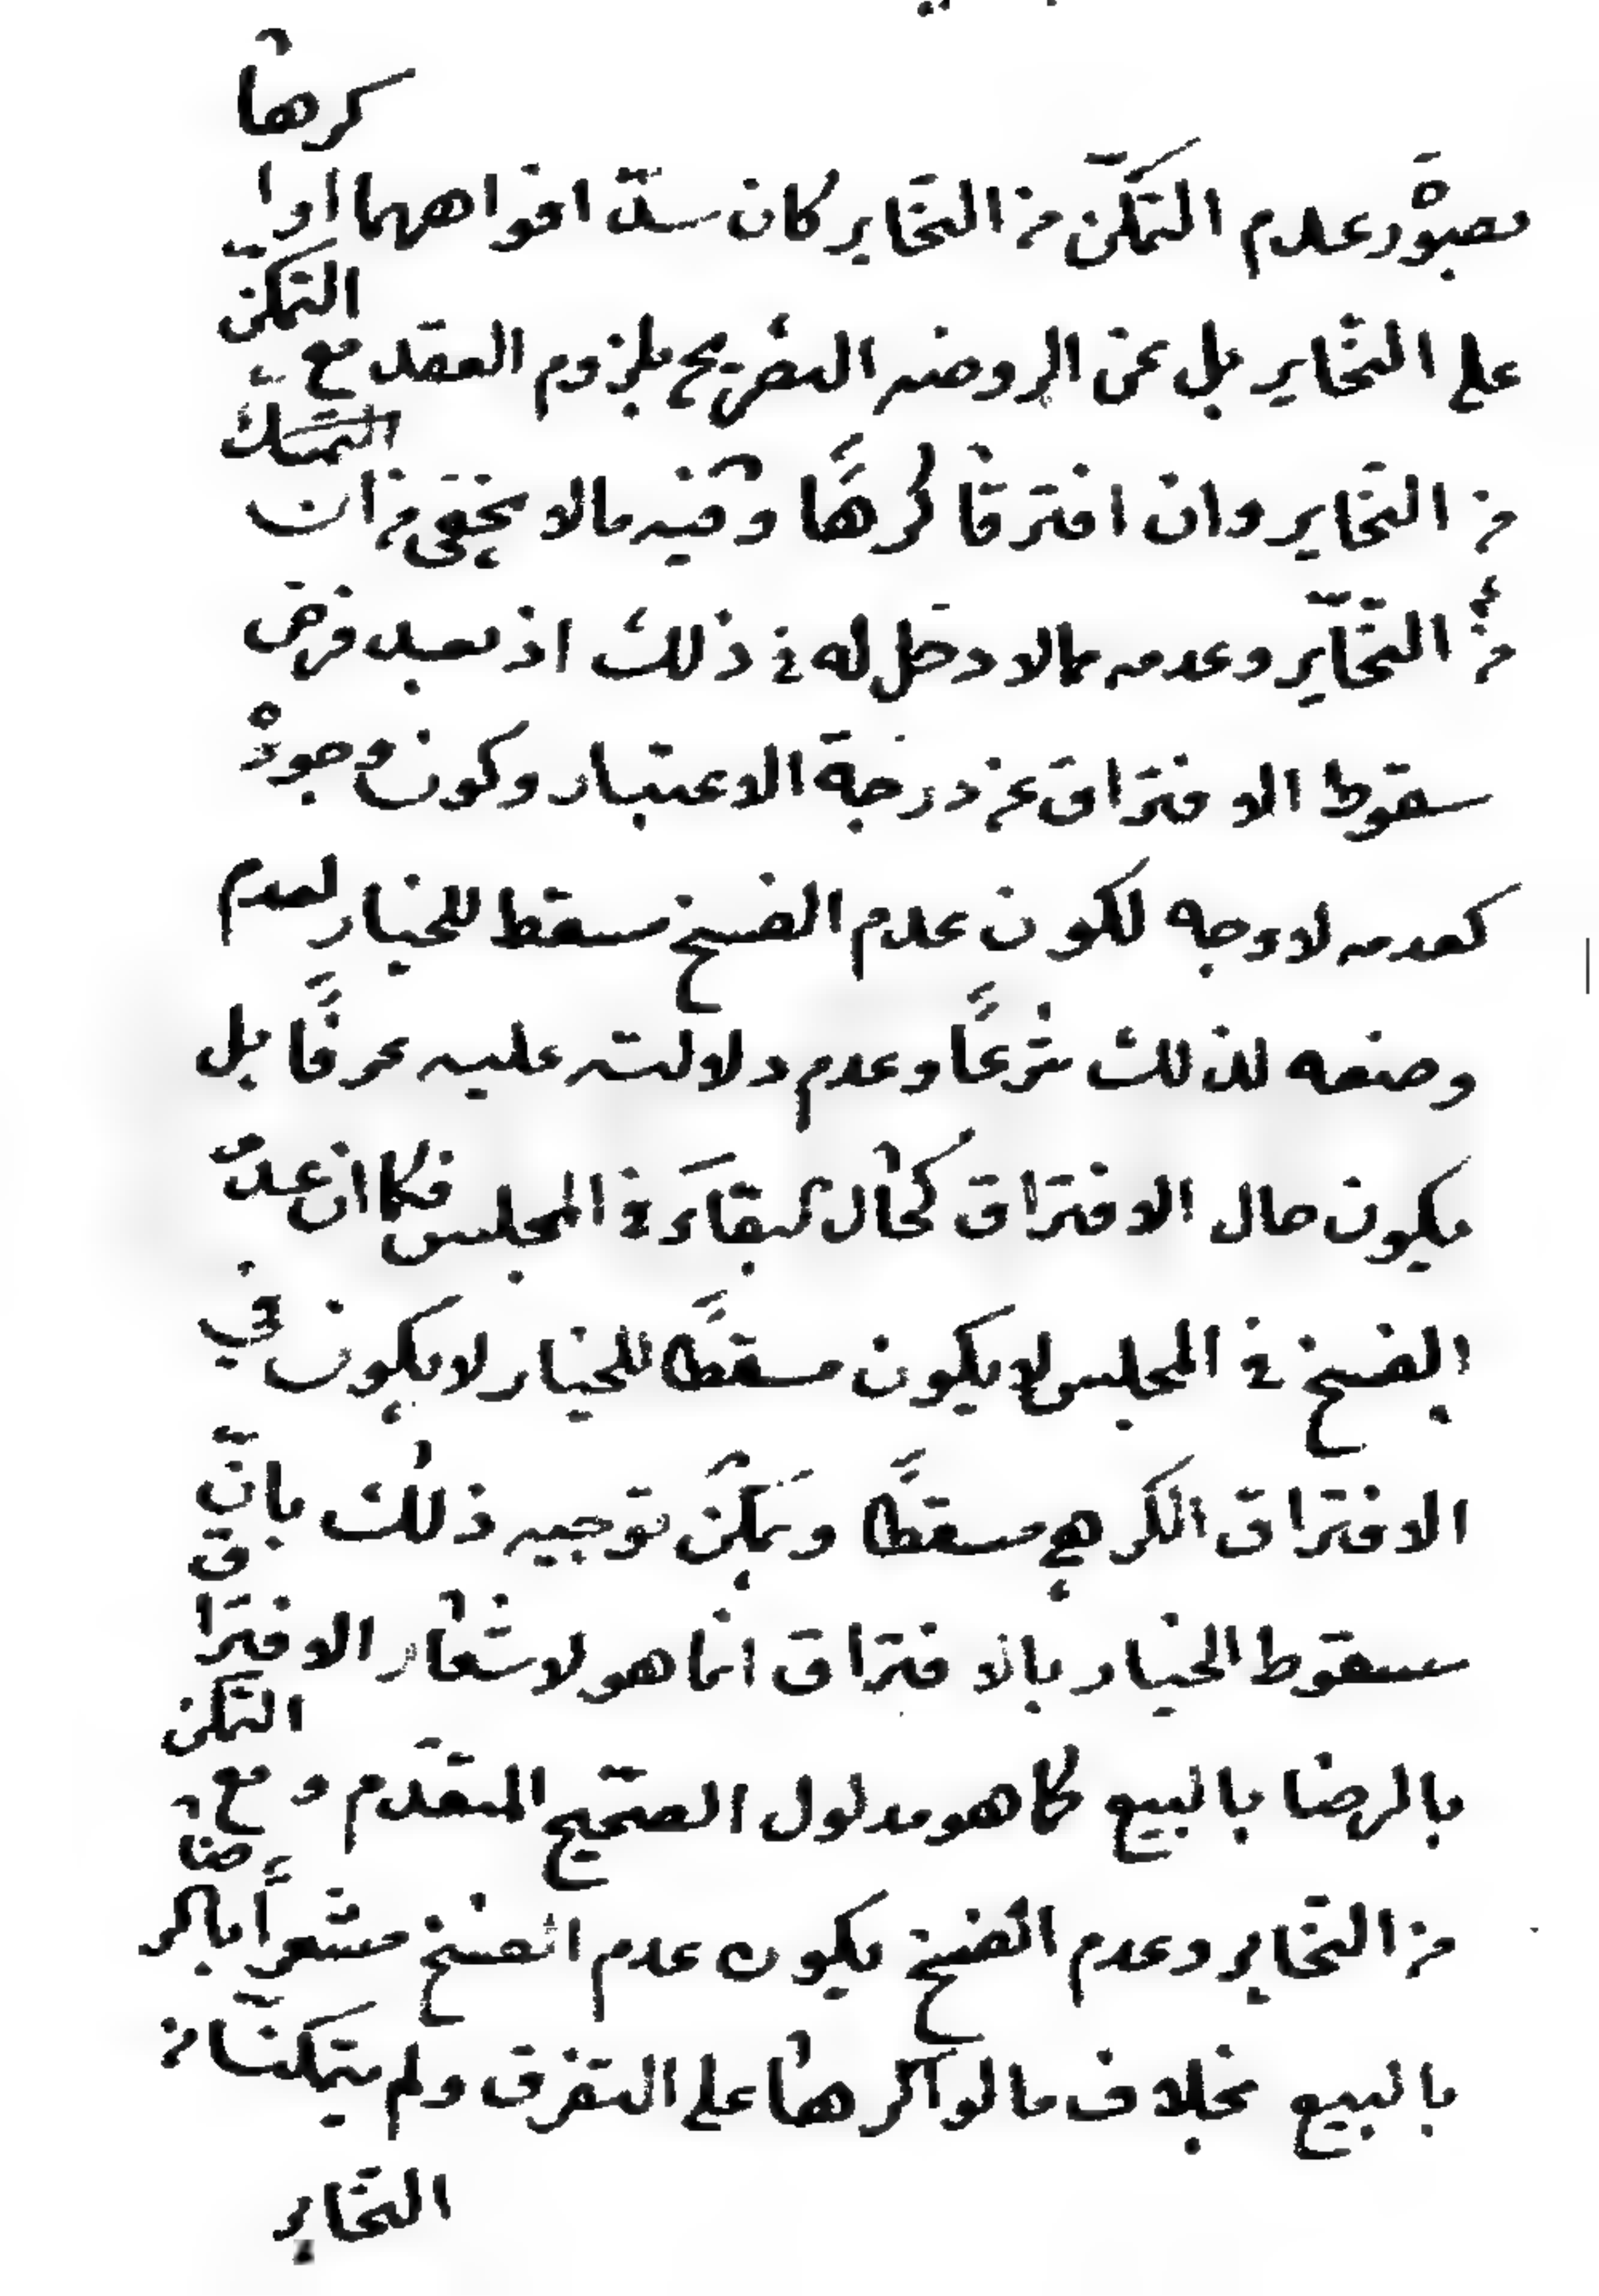 كرها
مصبور عدم التمكّن من التخاير كان سدّ افواههما او ا
على التخاير بل عن الروضه التصريح بلزوم العقد مع التمكن
من التخاير وان افترقا كُرهًا وفيه مالا يخفى من ان التمسك
من التخاير وعدمه ممالا دخل له في ذلك اذ بعد فرض
سقوط الافتراق عن درجة الاعتبار وكون وجوده
كعدمه لا وجه لكون عدم الفسخ مسقط للخيار لعدم
وضعه لذلك شرعًا وعدم دلالته عليه عرفًا بل
يكون حال الافتراق كحال البقاء في المجلس فكما ان عدم
الفسخ في المجلس لا يكون مسقطًا للخيار لا يكون في
الافتراق الكرهي مسقطًا ويمكن توجيه ذلك بانّ
سقوط الخيار بالافتراق انما هو لاشعار الافتراق
بالرضا بالبيع كما هو مدلول الصحيح المتقدم و مع التمكن
من التخاير وعدم الفسخ يكون عدم الفسخ مشعراً بالرضا
بالبيع بخلاف ما لو اكرها على التفرق ولم يتمكنا من
التخاير